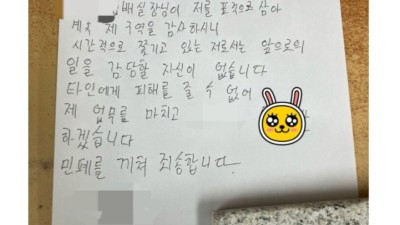 배실장님이 저를 표적으로 삼아
계속 제 구역을 감사하시니
시간적으로 쫓기고 있는 저로서는 앞으로의
일을 감당할 자신이 없습니다
타인에게 피해를 줄 수 없어
제 업무를 마치고
하겠습니다
민폐를 끼쳐 죄송합니다.